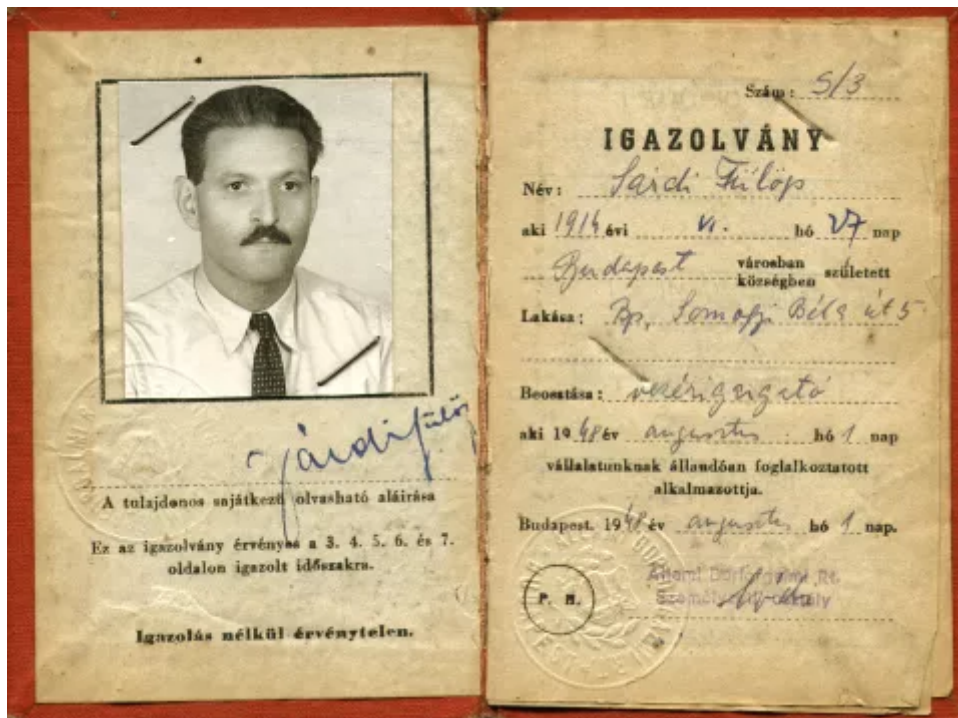 Sárdi Fülöp
A tulajdonos sajátkezű olvasható aláirása
Ez az igazolvány érvényes a 3. 4. 5. 6. és 7.
oldalon igazolt időszakra.
Igazolás nélkül érvénytelen.
Szám: S/3
IGAZOLVÁNY
Név: Sárdi Fülöp
aki 1914 évi VI. hó 27 nap
Budapest városban községben született
Lakása: Bp, Somogyi Béla út 5
Beosztása: vezérigazgató
aki 1948 év augusztus hó 1 nap
vállalatunknak állandóan foglalkoztatott
alkalmazottja.
Budapest. 1948 év augusztus hó 1 nap.
P. H.
Állami Bőrforgalmi Rt.
Személyzeti Osztály